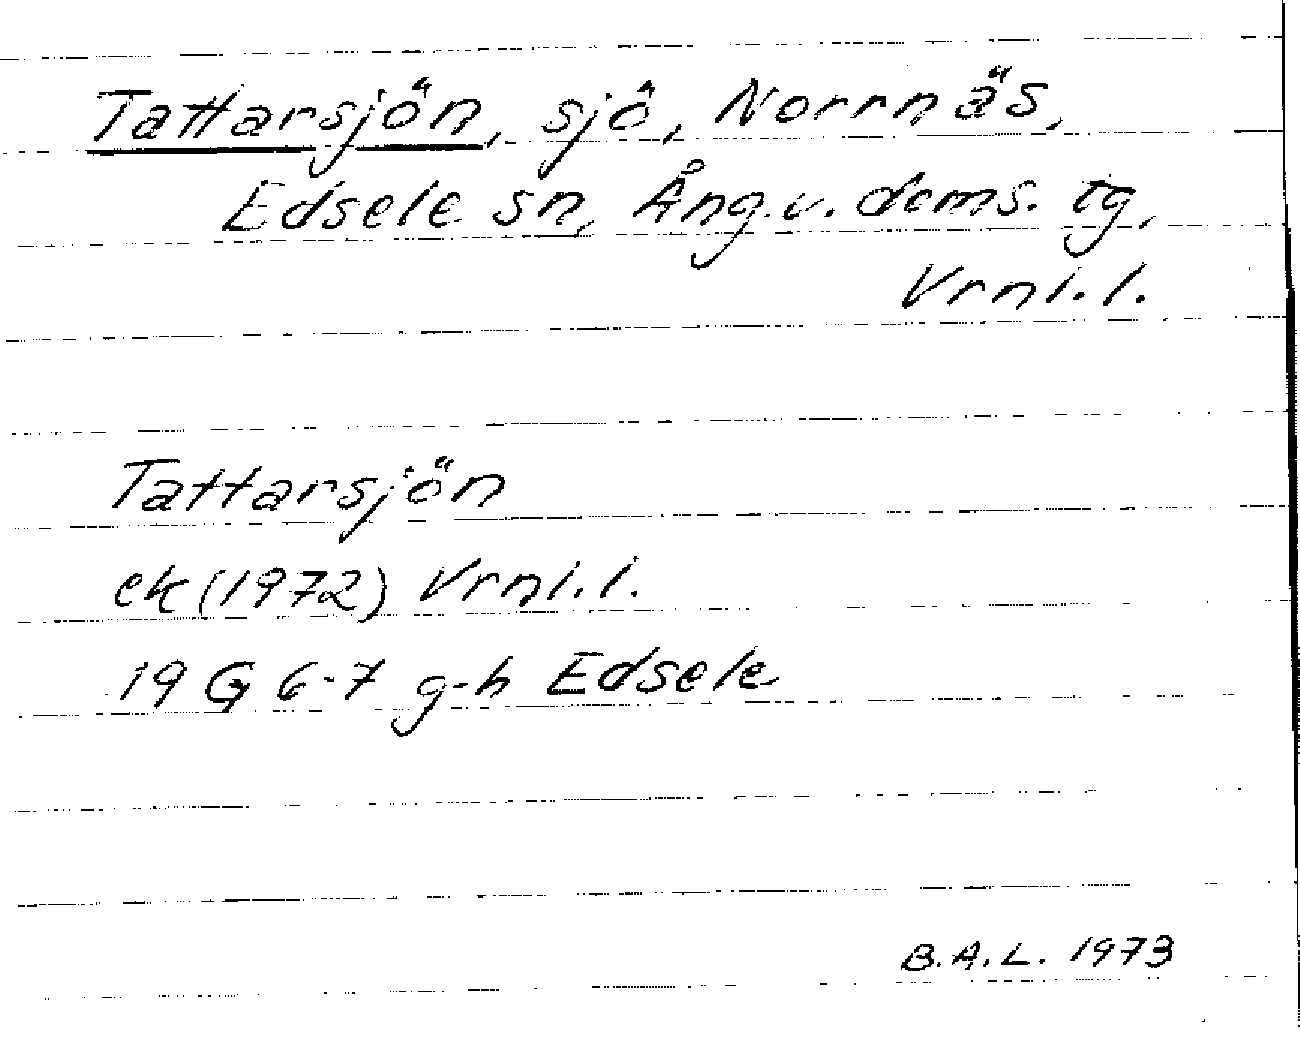 Tattarsjön, sjö, Norrnäs,
Edsele sn, Ång.v. doms. tg,
Vrnl. l.
Tattarsjön
ek (1972) Vrnl. l.
19 G 6-7 g-h Edsele
B.A.L. 1973